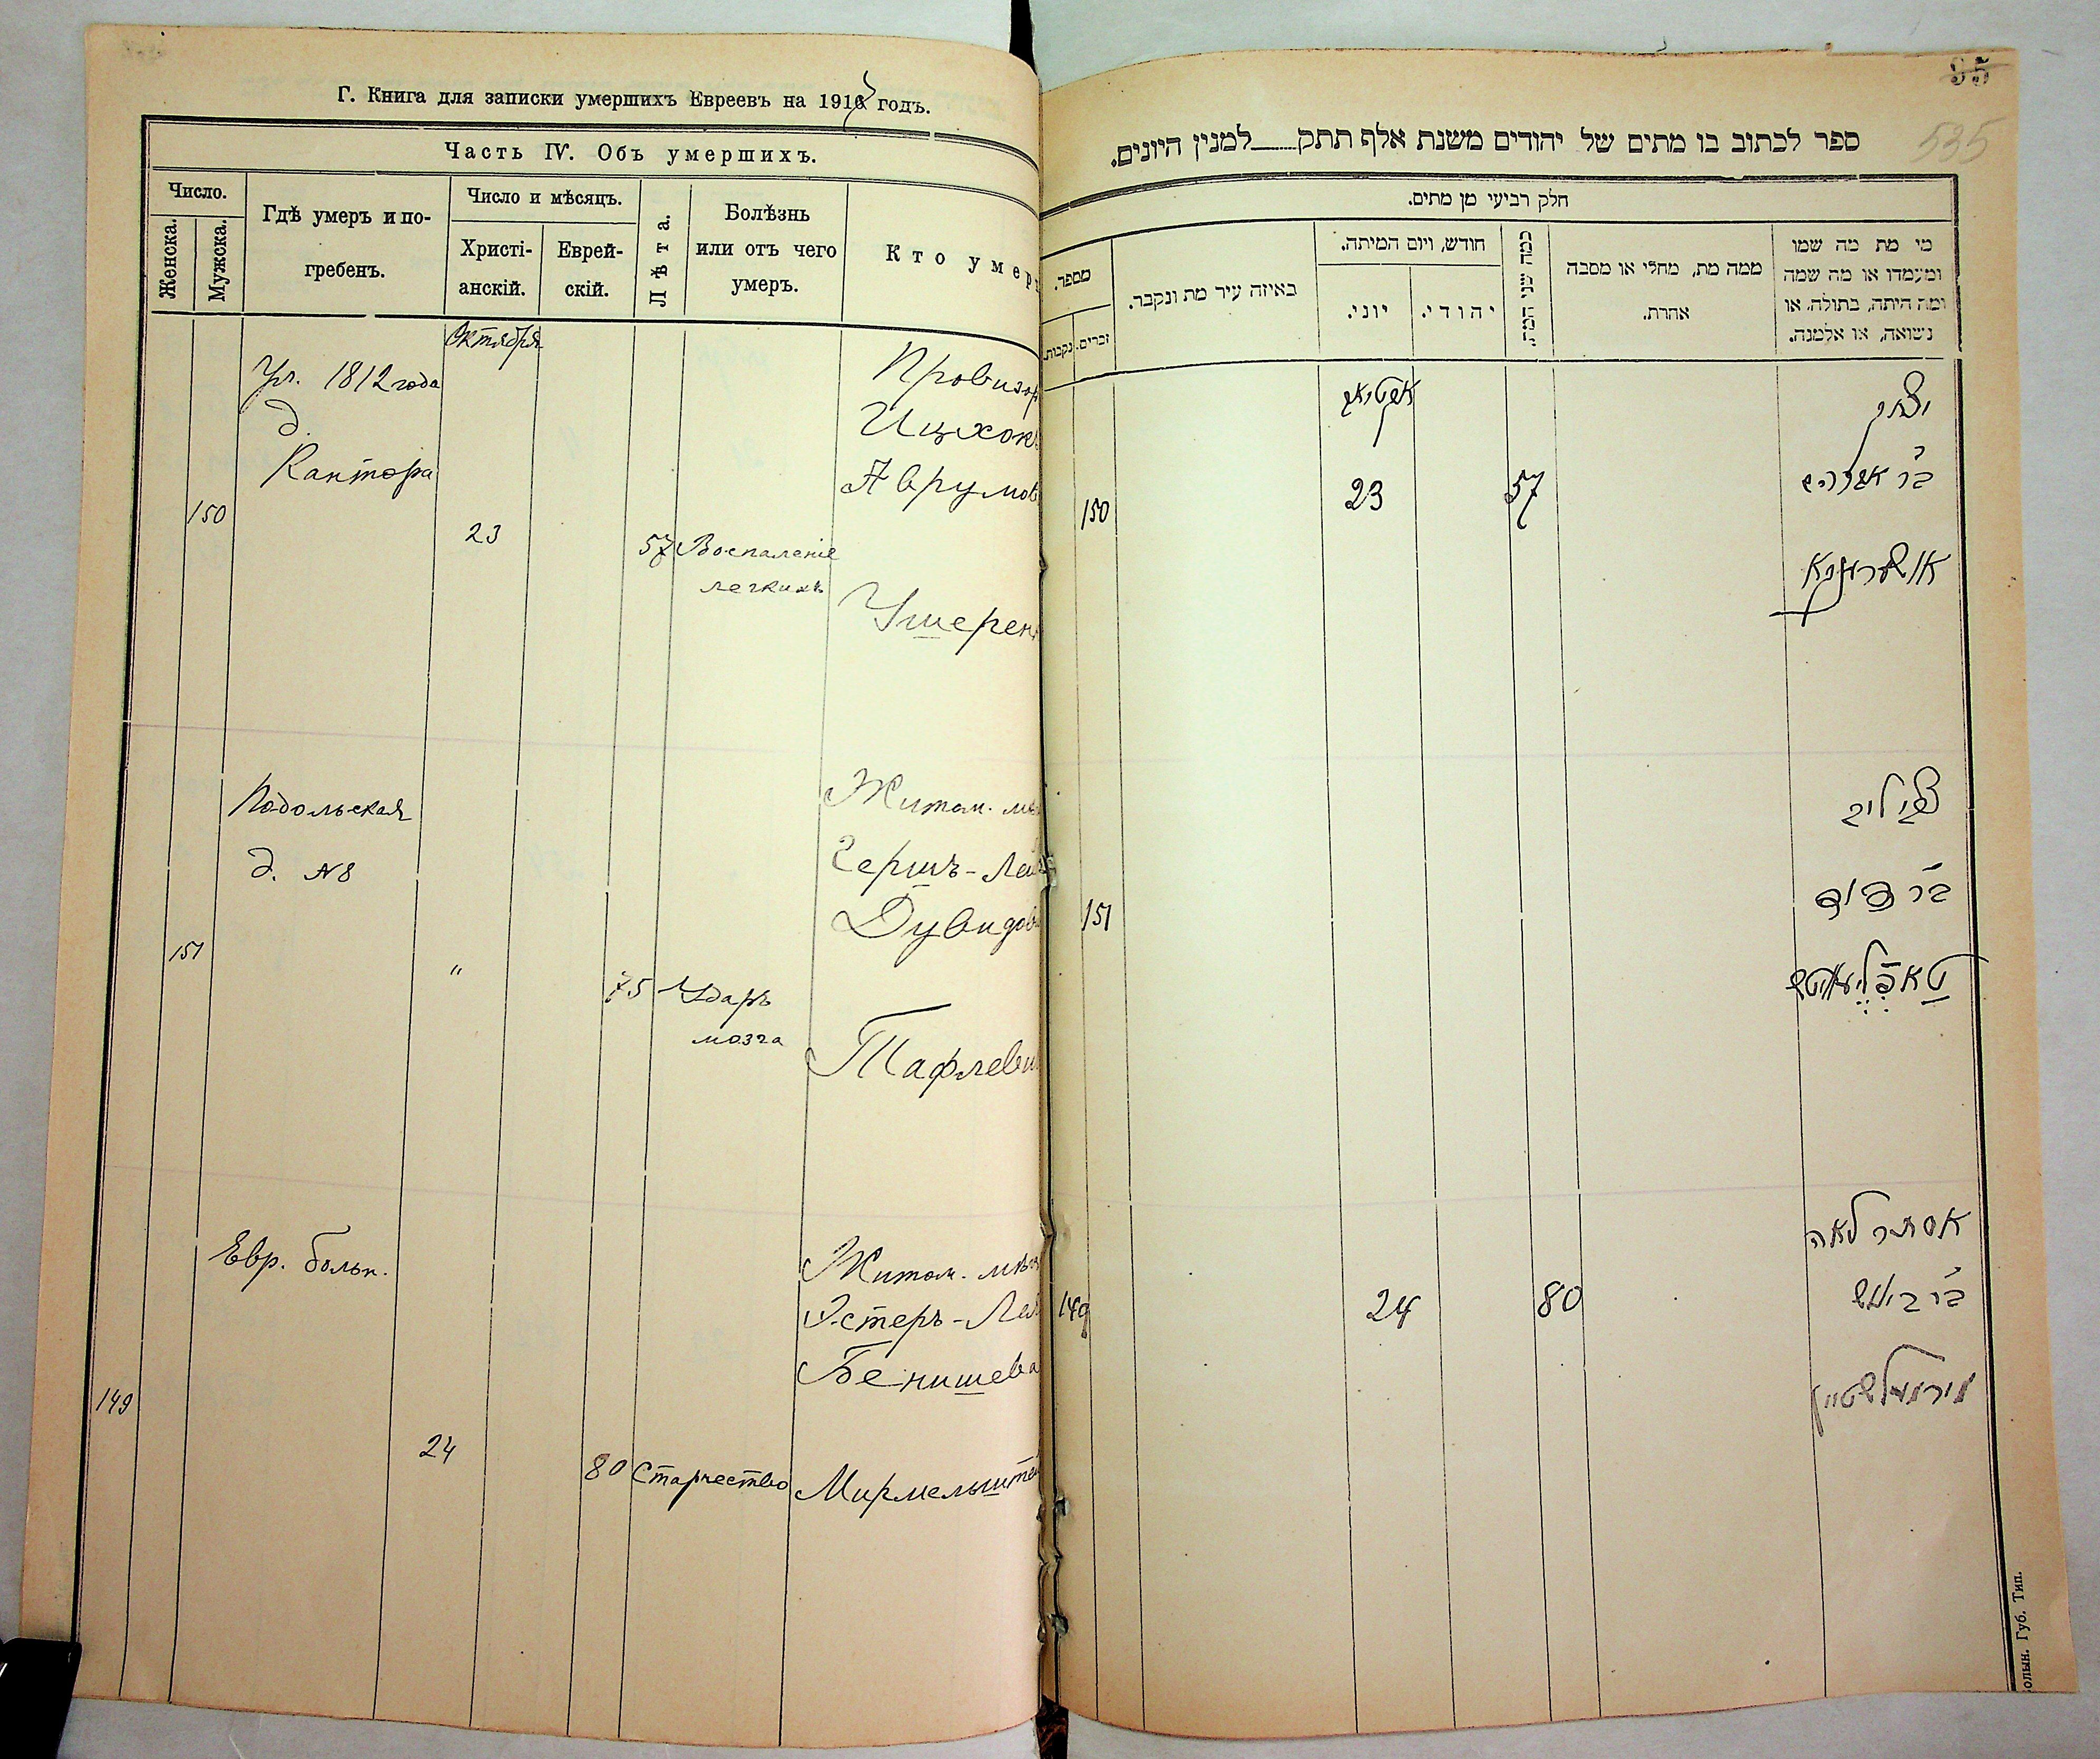 Г. Книга для записки умершихъ Евреевъ на 1916 годъ.
Часть IV. Объ умершихъ.
Число.
Женска.
Мужска.
Гдѣ умеръ и по-
гребенъ.
Число и мѣсяцъ.
Христі-
анскій.
Еврей-
скій.
Лѣта.
Болѣзнь
или отъ чего
умеръ.
Кто умер
Октября
Ул. 1812 года
д.
Кантора
150
23
57
Воспаленіе
легкихъ
Провизор
Ицхокъ
Аврумов
Ушерен
Подольская
д. №8
151
"
75
Ударъ
мозга
Житом. мѣ
Гершъ-Лей
Дувидов
Тафлеви
Евр. больн.
149
24
80
Старчество
Житом. мѣщ
Эстеръ-Лея
Бенишева
Мирмельштей
95
535
ספר לכתוב בו מתים של יהודים משנת אלף תתק למנין היונים.
חלק רביעי מן מתים.
מספר.
נקבות.
זכרים.
באיזה עיר מת ונקבר.
חודש, ויום המיתה.
יוני.
יהודי.
כמה שני המת.
ממה מת, מחלי או מסבה
אחרת.
מי מת מה שמו
ומעמדו או מה שמה
ומה היתה, בתולה, או
נשואה, או אלמנה.
150
23
57
יצחק
ב״ר אברהם
151
ב״ר דוד
149
24
80
אסתר לאה
מירמעלשטיין
олын. Губ. Тип.